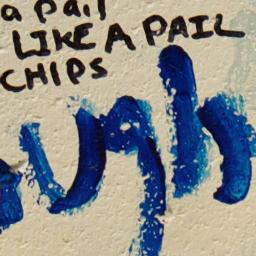 a pail
LIKE A PAIL
CHIPS
ugh